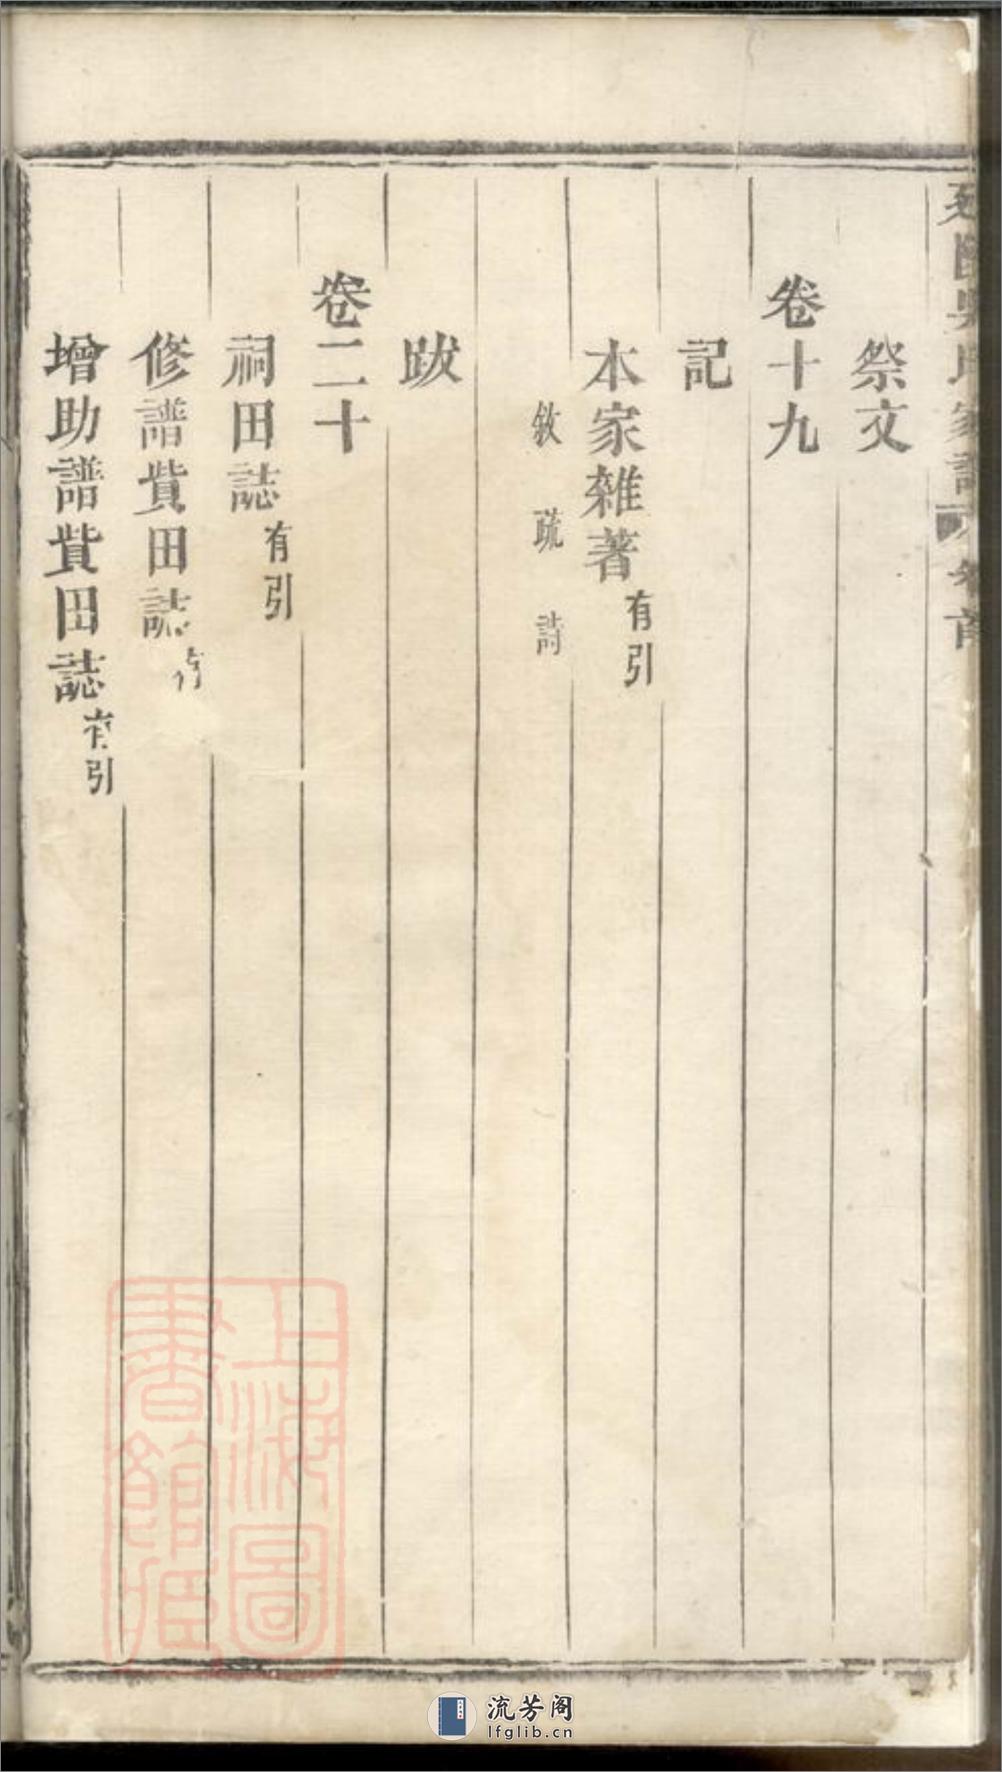 祭文
卷十九
記
本家雜著有引
敘 疏 詩
跋
卷二十
祠田誌有引
修譜貲田誌
增助譜貲田誌有引
上海圖書館藏
流芳阁
lfglib.cn